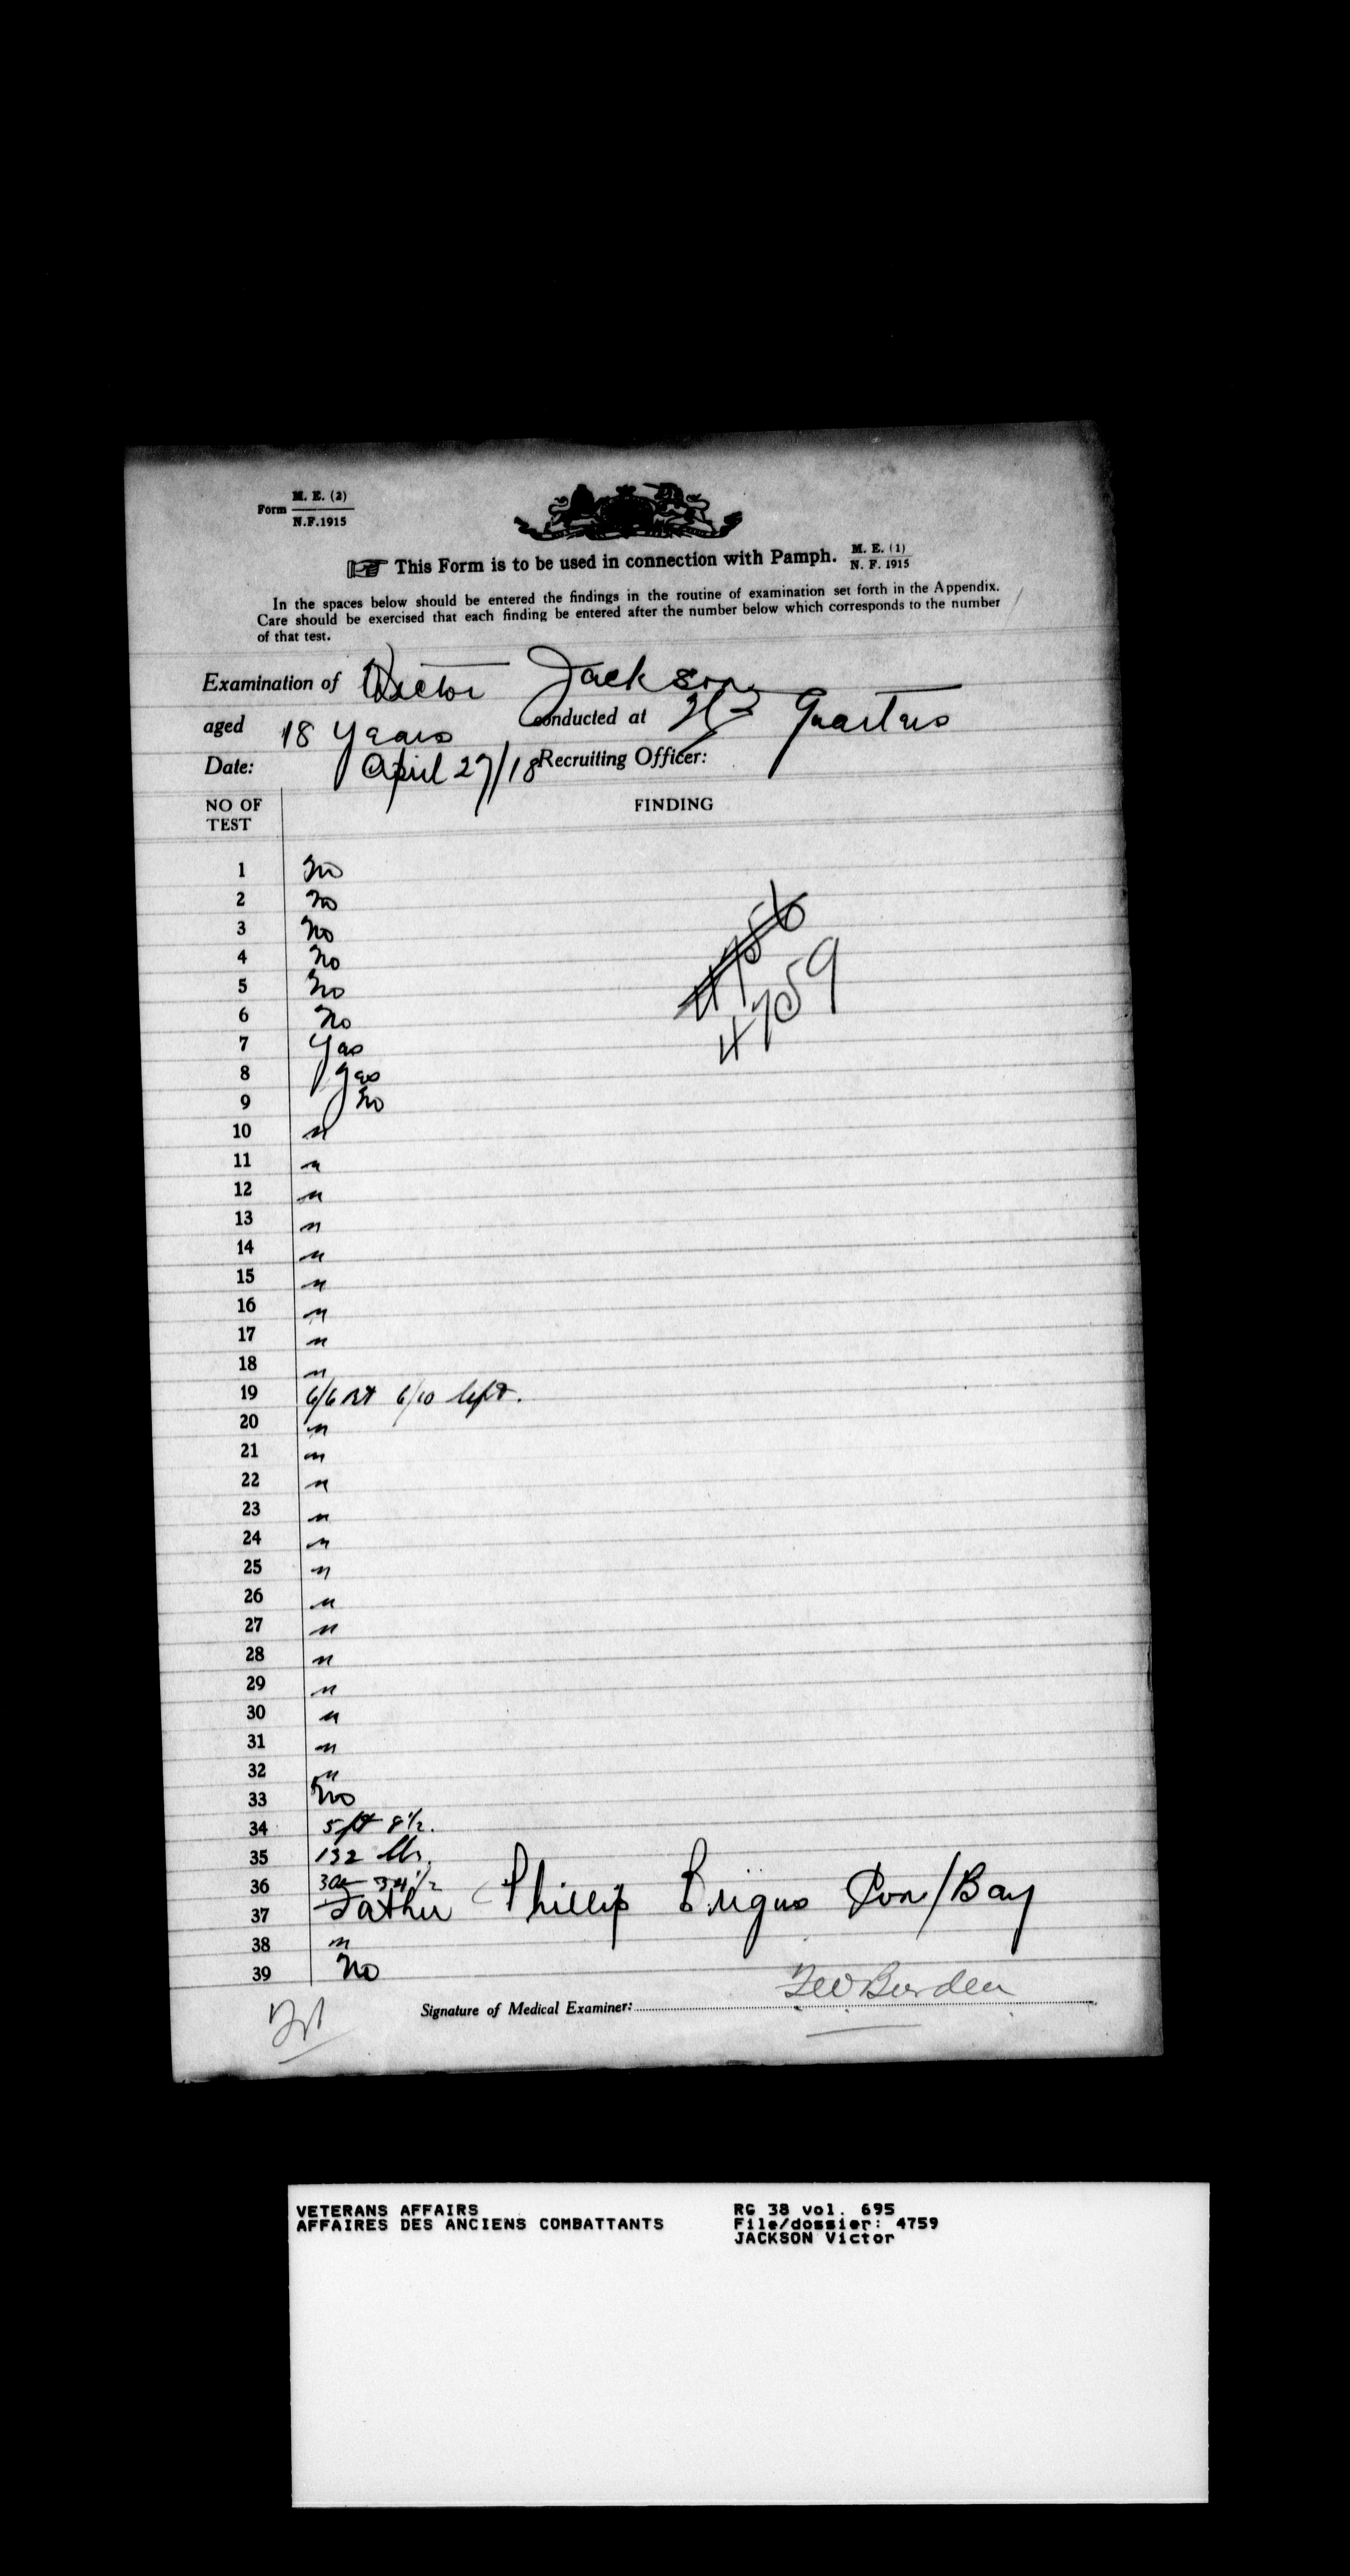 Form M. E. (2)
N.F.1915
This Form is to be used in connection with Pamph. M. E. (1)
N. F. 1915
In the spaces below should be entered the findings in the routine of examination set forth in the Appendix.
Care should be exercised that each finding be entered after the number below which corresponds to the number
of that test.
Examination of Victor Jackson
aged 18 years conducted at Hd Quarters
Date: April 27/18 Recruiting Officer:
NO OF
TEST
FINDING
1 No
2 No
3 No
4 No
5 No
6 No
7 Yes
8 Yes
9 No
4756
4759
10 n
11 n
12 n
13 n
14 n
15 n
16 n
17 n
18 n
19 6/6 Rt 6/10 left.
20 n
21 n
22 n
23 n
24 n
25 n
26 n
27 n
28 n
29 n
30 n
31 n
32 n
33 No
34 5 ft 8 1/2.
35 132 lbs.
36 34 1/2
37 Father Phillip Brigus Con/Bay
38 n
39 No
Signature of Medical Examiner: Burden
VETERANS AFFAIRS
AFFAIRES DES ANCIENS COMBATTANTS
RG 38 vol. 695
File/dossier: 4759
JACKSON Victor